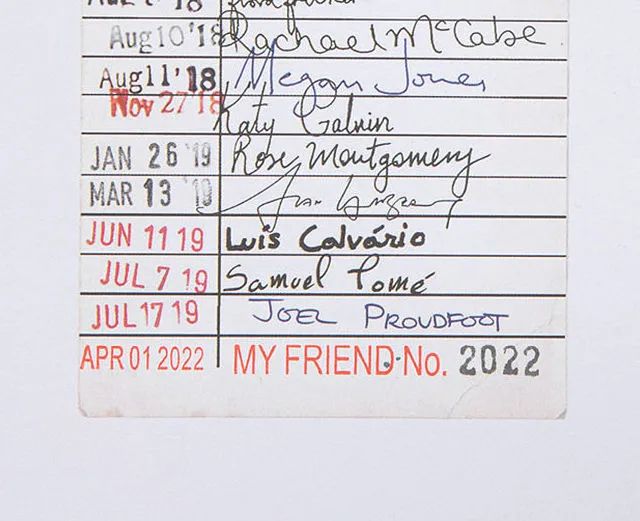 Aug 10 '18 Rachael McCabe
Aug 11 '18 Megan Jones
Nov 27 '18 Katy Galvin
JAN 26 '19 Rose Montgomery
MAR 13 '19
JUN 11 19 Luis Calvário
JUL 7 19 Samuel Tomé
JUL 17 19 JOEL PROUDFOOT
APR 01 2022 MY FRIEND No. 2022